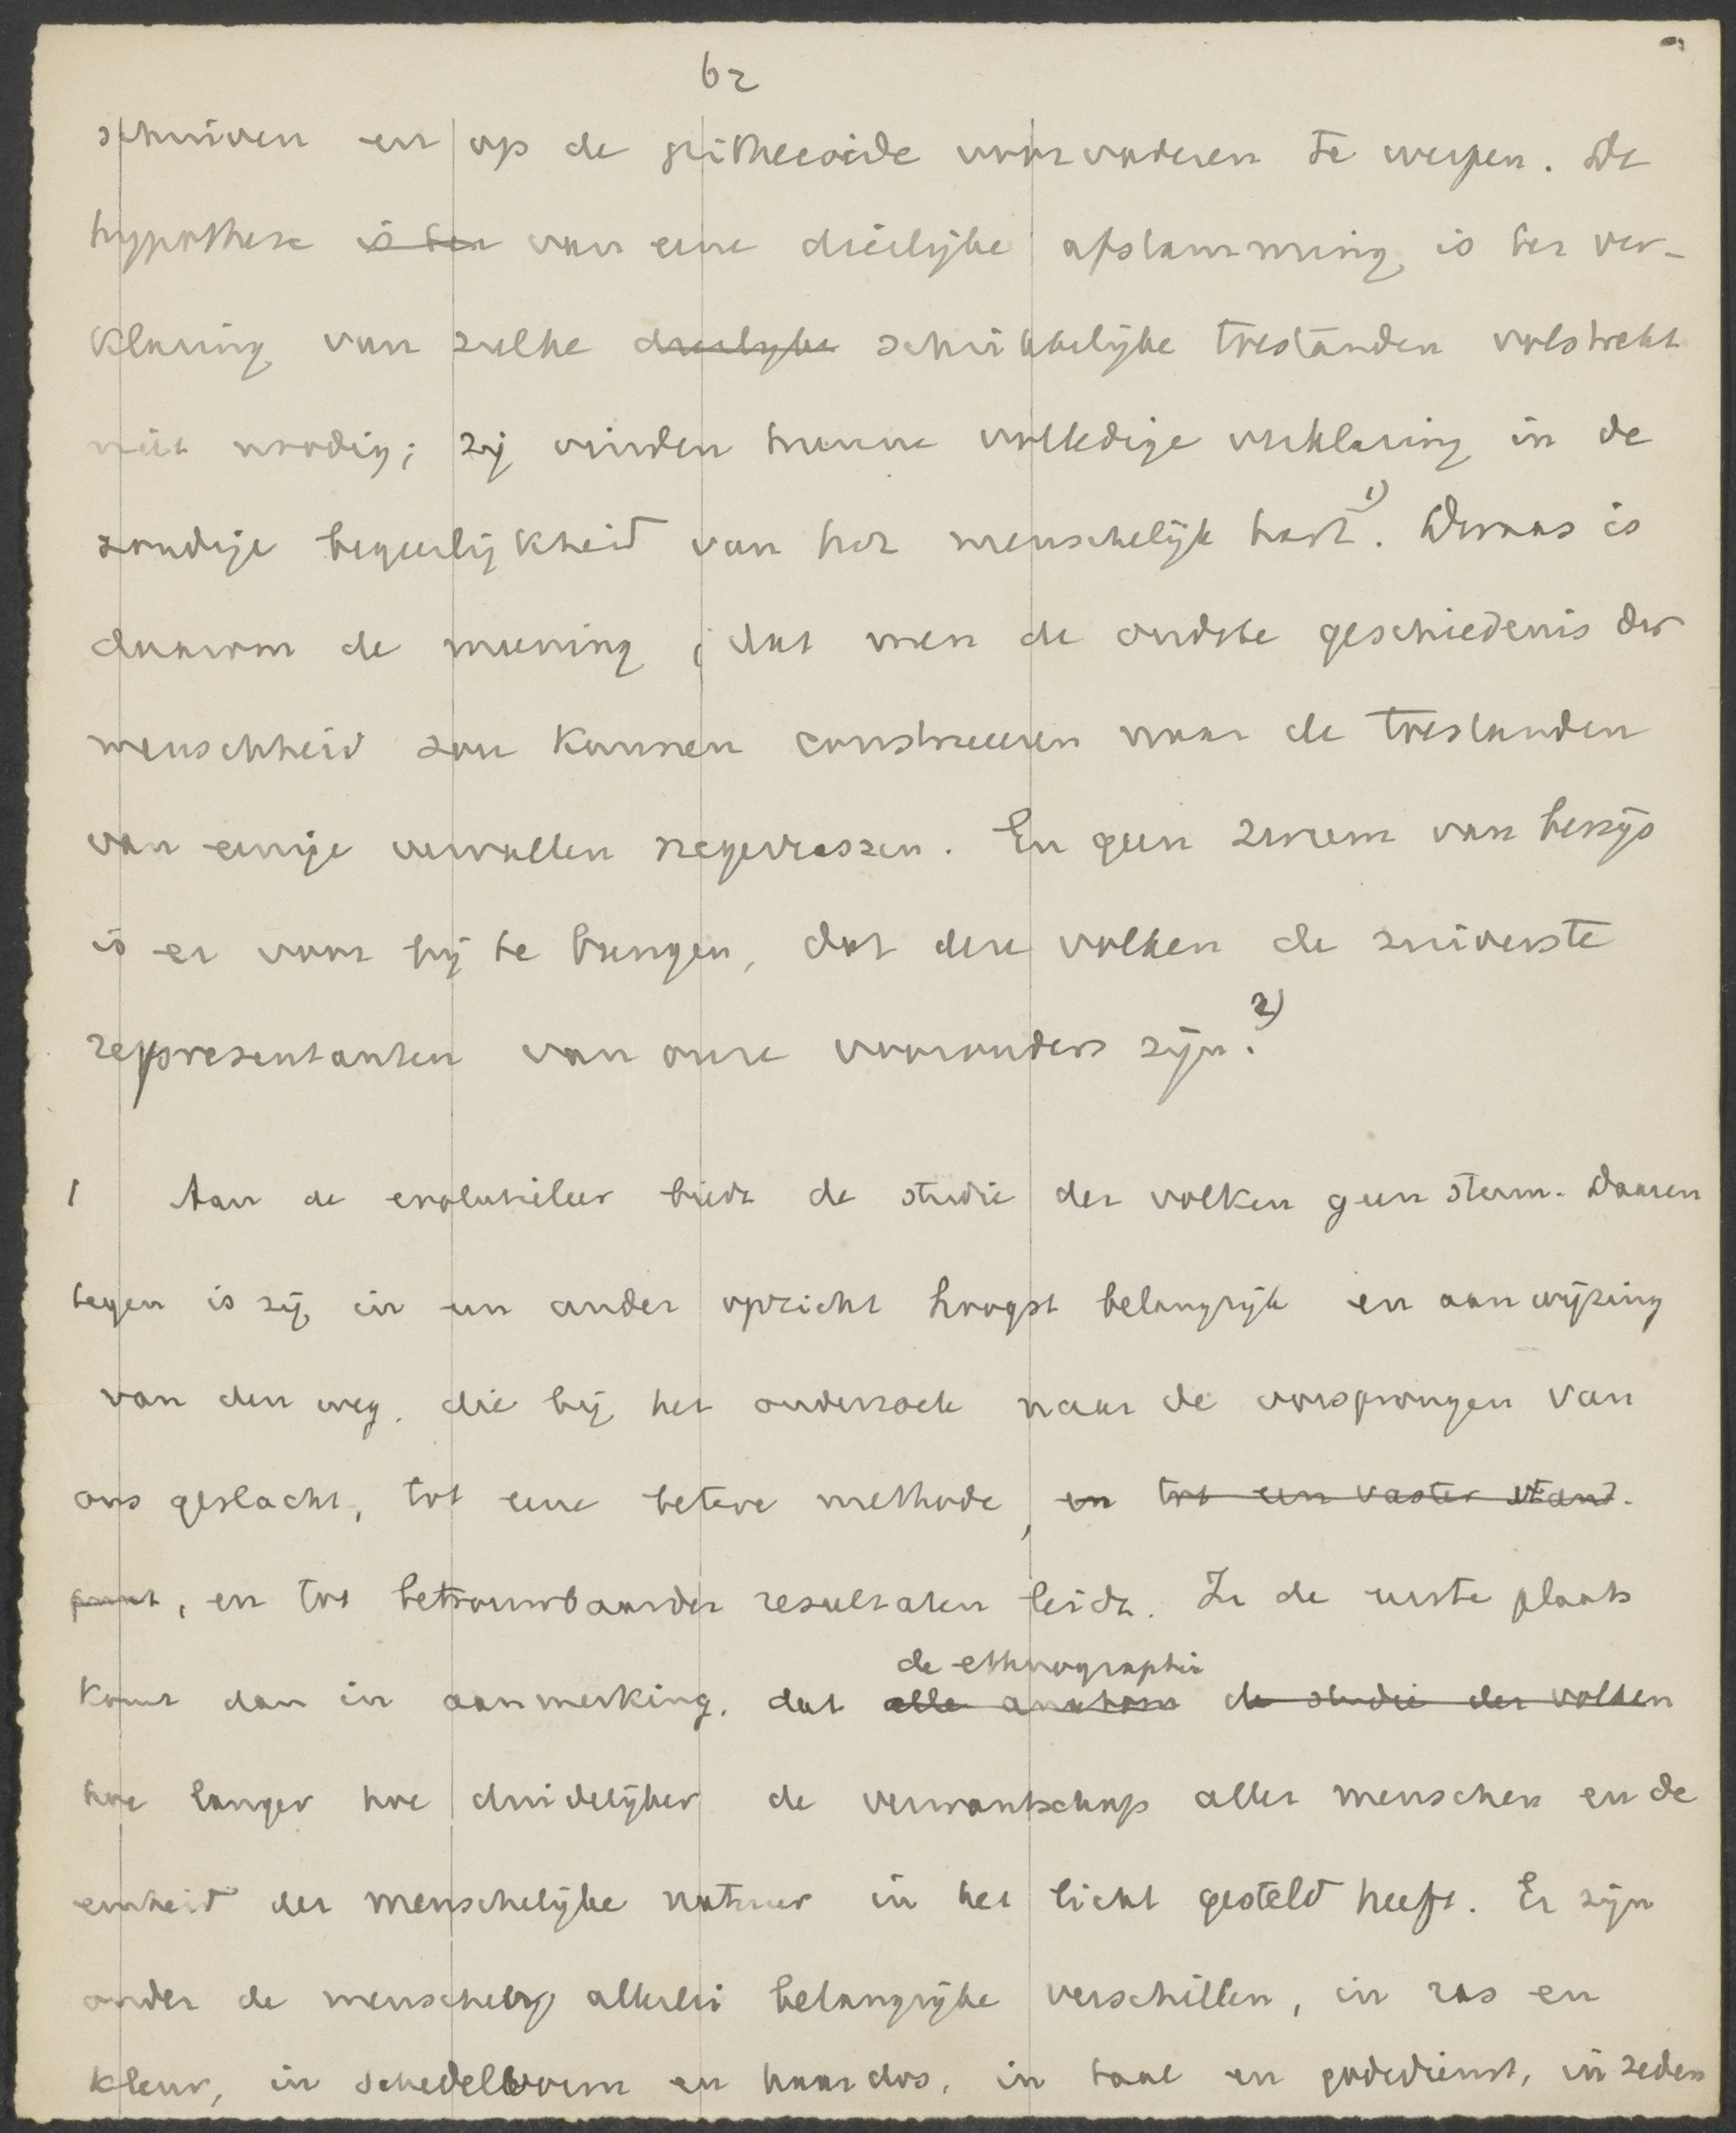 62
schuiven en op de pithecoide voorvaderen te werpen. De
hypothese is ter van eene dierlijke afstamming is ter ver-
klaring van zulke dierlijke schrikkelijke toestanden volstrekt
niet noodig; zij vinden hunne volledige verklaring in de
zondige begeerlijkheid van het menschelijk hart 1). Dwaas is
daarom de meening, dat men de oudste geschiedenis der
menschheid zou kunnen construeeren naar de toestanden
van eenige vervallen negerrassen. En geen zweem van bewijs
is er voor bij te brengen, dat deze volken de zuiverste
representanten van onze voorouders zijn. 2)
1 Aan de evolutieleer biedt de studie der volken geen steun. Daaren
tegen is zij in een ander opzicht hoogst belangrijk en aanwijzing
van den weg, die bij het onderzoek naar de oorsprongen van
ons geslacht, tot eene betere methode, en tot een vaster stand-
punt, en tot betrouwbaarder resultaten leidt. In de eerste plaats
de ethnographie
komt dan in aanmerking, dat alle de studie der volken
hoe langer hoe duidelijker de verwantschap aller menschen en de
eenheid der menschelijke natuur in het licht gesteld heeft. Er zijn
onder de menschen allerlei belangrijke verschillen, in ras en
kleur, in schedelvorm en haardos, in taal en godsdienst, in zeden